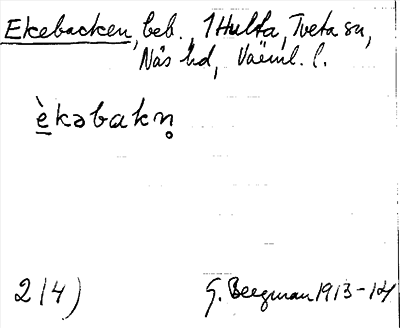 Ekebacken, beb., 1 Hulta, Tveta sn,
Näs hd, Värml. l.
è̱kəbakn̥
2 (4)
G. Bergman 1913-14